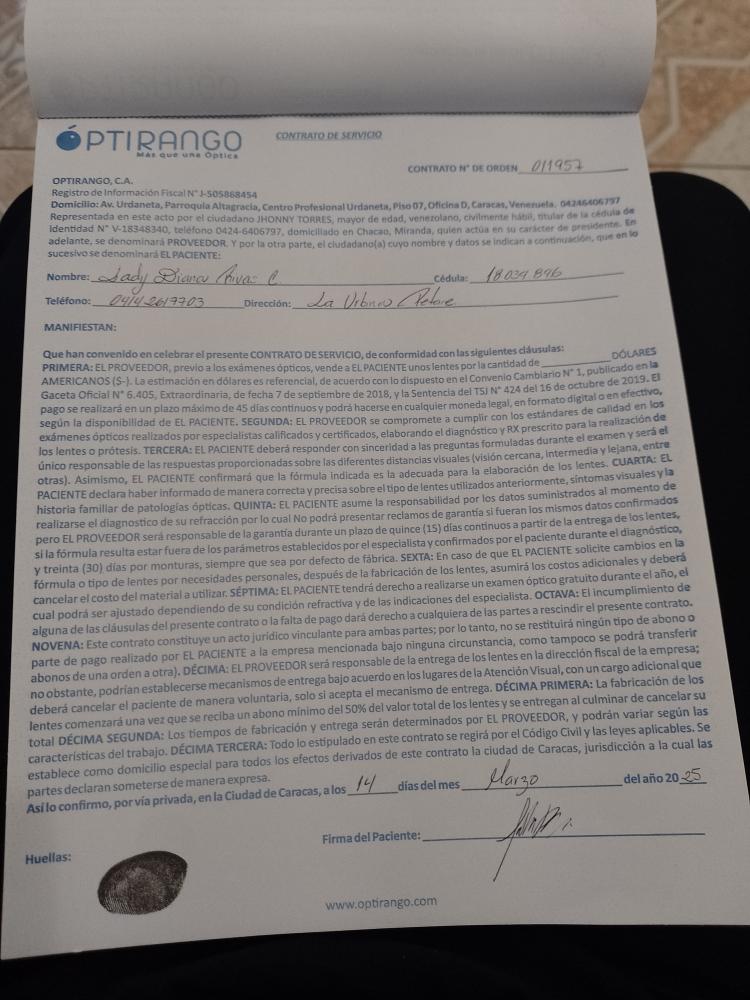 ÓPTIRANGO
Más que una Óptica
CONTRATO DE SERVICIO
CONTRATO N° DE ORDEN 011957
OPTIRANGO, C.A.
Registro de Información Fiscal N° J-505868454
Domicilio: Av. Urdaneta, Parroquia Altagracia, Centro Profesional Urdaneta, Piso 07, Oficina D, Caracas, Venezuela. 04246406797
Representada en este acto por el ciudadano JHONNY TORRES, mayor de edad, venezolano, civilmente hábil, titular de la cédula de
Identidad N° V-18348340, teléfono 0424-6406797, domiciliado en Chacao, Miranda, quien actúa en su carácter de presidente. En
adelante, se denominará PROVEEDOR. Y por la otra parte, el ciudadano(a) cuyo nombre y datos se indican a continuación, que en lo
sucesivo se denominará EL PACIENTE:
Nombre: Lady Diana Rivas C. Cédula: 18039896
Teléfono: 04142619703 Dirección: La Urbina Petare
MANIFIESTAN:
Que han convenido en celebrar el presente CONTRATO DE SERVICIO, de conformidad con las siguientes cláusulas:
PRIMERA: EL PROVEEDOR, previo a los exámenes ópticos, vende a EL PACIENTE unos lentes por la cantidad de ____________ DÓLARES
AMERICANOS ($-). La estimación en dólares es referencial, de acuerdo con lo dispuesto en el Convenio Cambiario N° 1, publicado en la
Gaceta Oficial N° 6.405, Extraordinaria, de fecha 7 de septiembre de 2018, y la Sentencia del TSJ N° 424 del 16 de octubre de 2019. El
pago se realizará en un plazo máximo de 45 días continuos y podrá hacerse en cualquier moneda legal, en formato digital o en efectivo,
según la disponibilidad de EL PACIENTE. SEGUNDA: EL PROVEEDOR se compromete a cumplir con los estándares de calidad en los
exámenes ópticos realizados por especialistas calificados y certificados, elaborando el diagnóstico y RX prescrito para la realización de
los lentes o prótesis. TERCERA: EL PACIENTE deberá responder con sinceridad a las preguntas formuladas durante el examen y será el
único responsable de las respuestas proporcionadas sobre las diferentes distancias visuales (visión cercana, intermedia y lejana, entre
otras). Asimismo, EL PACIENTE confirmará que la fórmula indicada es la adecuada para la elaboración de los lentes. CUARTA: EL
PACIENTE declara haber informado de manera correcta y precisa sobre el tipo de lentes utilizados anteriormente, síntomas visuales y la
historia familiar de patologías ópticas. QUINTA: EL PACIENTE asume la responsabilidad por los datos suministrados al momento de
realizarse el diagnostico de su refracción por lo cual No podrá presentar reclamos de garantía si fueran los mismos datos confirmados
pero EL PROVEEDOR será responsable de la garantía durante un plazo de quince (15) días continuos a partir de la entrega de los lentes,
si la fórmula resulta estar fuera de los parámetros establecidos por el especialista y confirmados por el paciente durante el diagnóstico,
y treinta (30) días por monturas, siempre que sea por defecto de fábrica. SEXTA: En caso de que EL PACIENTE solicite cambios en la
fórmula o tipo de lentes por necesidades personales, después de la fabricación de los lentes, asumirá los costos adicionales y deberá
cancelar el costo del material a utilizar. SÉPTIMA: EL PACIENTE tendrá derecho a realizarse un examen óptico gratuito durante el año, el
cual podrá ser ajustado dependiendo de su condición refractiva y de las indicaciones del especialista. OCTAVA: El incumplimiento de
alguna de las cláusulas del presente contrato o la falta de pago dará derecho a cualquiera de las partes a rescindir el presente contrato.
NOVENA: Este contrato constituye un acto jurídico vinculante para ambas partes; por lo tanto, no se restituirá ningún tipo de abono o
parte de pago realizado por EL PACIENTE a la empresa mencionada bajo ninguna circunstancia, como tampoco se podrá transferir
abonos de una orden a otra). DÉCIMA: EL PROVEEDOR será responsable de la entrega de los lentes en la dirección fiscal de la empresa;
no obstante, podrían establecerse mecanismos de entrega bajo acuerdo en los lugares de la Atención Visual, con un cargo adicional que
deberá cancelar el paciente de manera voluntaria, solo si acepta el mecanismo de entrega. DÉCIMA PRIMERA: La fabricación de los
lentes comenzará una vez que se reciba un abono mínimo del 50% del valor total de los lentes y se entregan al culminar de cancelar su
total DÉCIMA SEGUNDA: Los tiempos de fabricación y entrega serán determinados por EL PROVEEDOR, y podrán variar según las
características del trabajo. DÉCIMA TERCERA: Todo lo estipulado en este contrato se regirá por el Código Civil y las leyes aplicables. Se
establece como domicilio especial para todos los efectos derivados de este contrato la ciudad de Caracas, jurisdicción a la cual las
partes declaran someterse de manera expresa.
Así lo confirmo, por vía privada, en la Ciudad de Caracas, a los 14 días del mes Marzo del año 2025
Firma del Paciente:
Huellas:
www.optirango.com